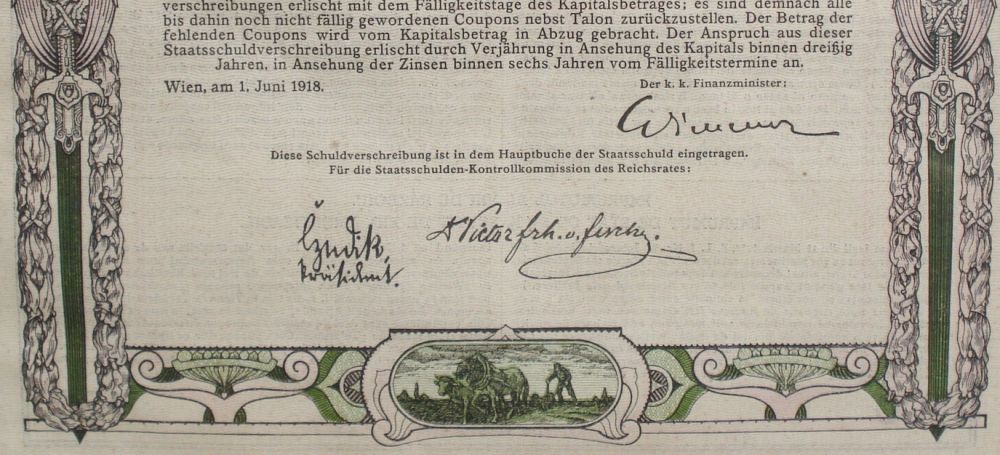 verschreibungen erlischt mit dem Fälligkeitstage des Kapitalsbetrages; es sind demnach alle
bis dahin noch nicht fällig gewordenen Coupons nebst Talon zurückzustellen. Der Betrag der
fehlenden Coupons wird vom Kapitalsbetrag in Abzug gebracht. Der Anspruch aus dieser
Staatsschuldverschreibung erlischt durch Verjährung in Ansehung des Kapitals binnen dreißig
Jahren, in Ansehung der Zinsen binnen sechs Jahren vom Fälligkeitstermine an.
Wien, am 1. Juni 1918.
Der k. k. Finanzminister:
Wimmer
Diese Schuldverschreibung ist in dem Hauptbuche der Staatsschuld eingetragen.
Für die Staatsschulden-Kontrollkommission des Reichsrates:
Präsident.
Dr Victor frh. v.